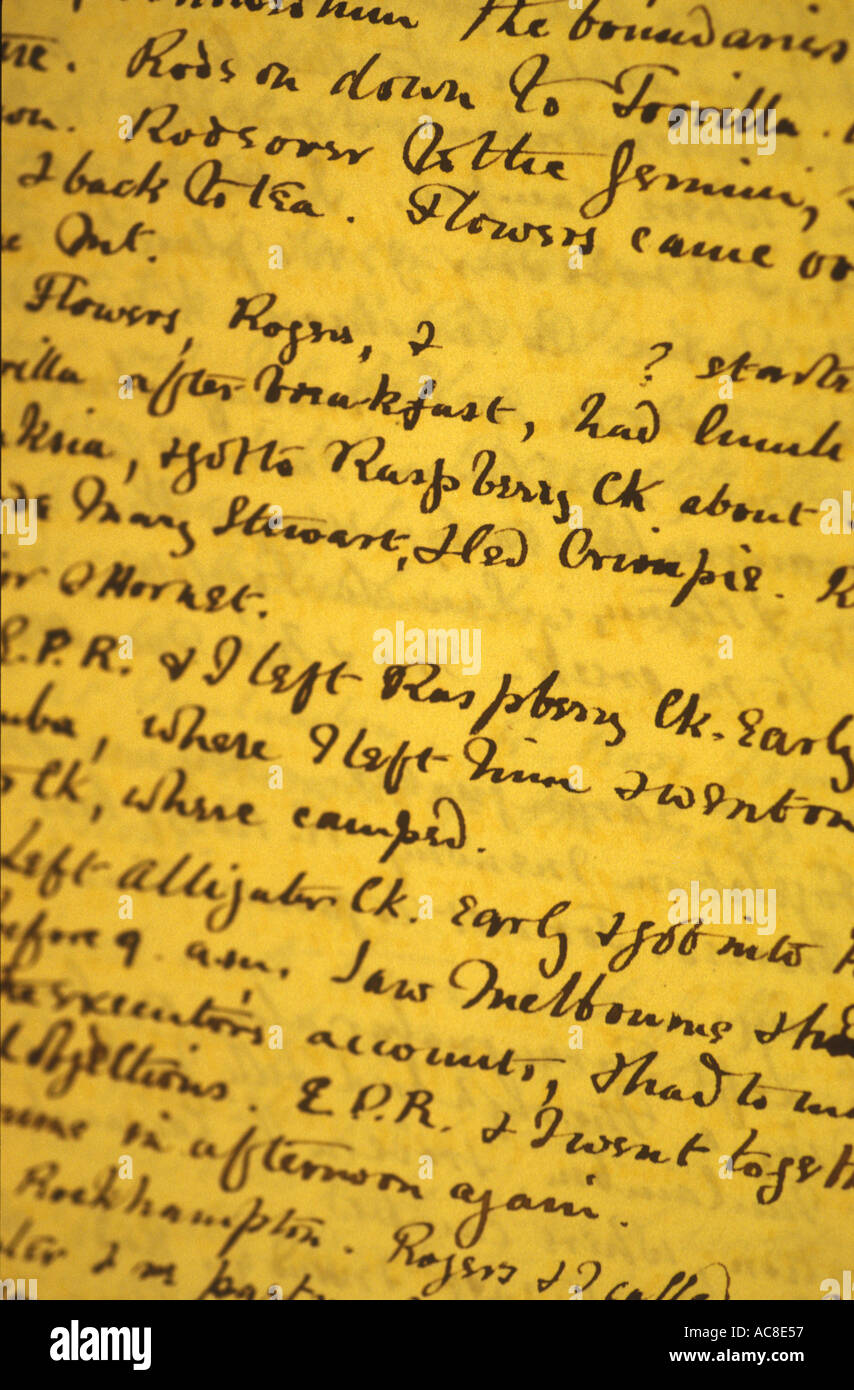 him the boundaries
Rode on down to Torrilla.
Rode over to the Gemini,
& back to tea. Flowers came
Mt.
Flowers, Rogers, & ? start
rilla after breakfast, had lunch
ksia, & got to Raspberry Ck about
Mary Stewart, & led Crimpie. R
or & Hornet.
E.P.R. & I left Raspberry Ck. Early
mba, where I left him & went on
Ck, where camped.
Left Alligator Ck. Early & got into
before 9. a.m. Saw Melbourne & the
executor's accounts, & had to
objections. E.P.R. & I went togeth
in afternoon again.
Rockhampton. Rogers & I called
& me
alamy
Image ID: AC8E57
www.alamy.com